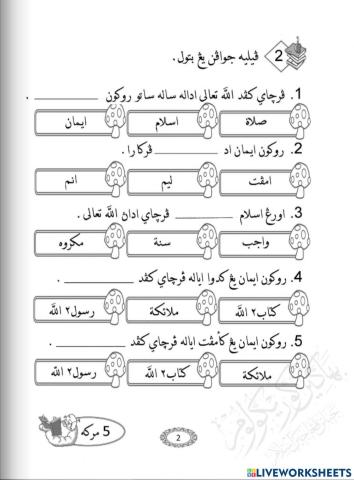 2 ڤيليه جواڤن يڠ بتول.
1. ڤرچاي كڤد الله تعالى اداله ساله ساتو روكون ________ .
صلاة اسلام ايمان
2. روكون ايمان اد ________ ڤركارا .
امڤت ليم انم
3. اورڠ اسلام ________ ڤرچاي ادان الله تعالى .
واجب سنة مكروه
4. روكون ايمان يڠ كدوا اياله ڤرچاي كڤد ________ .
كتاب٢ الله ملائكة رسول٢ الله
5. روكون ايمان يڠ كأمڤت اياله ڤرچاي كڤد ________ .
ملائكة كتاب٢ الله رسول٢ الله
5 مركه
2
LIVEWORKSHEETS